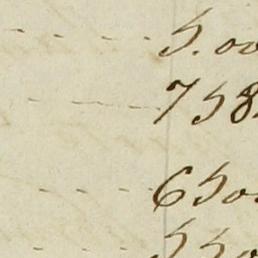 5.00
758
650.
550